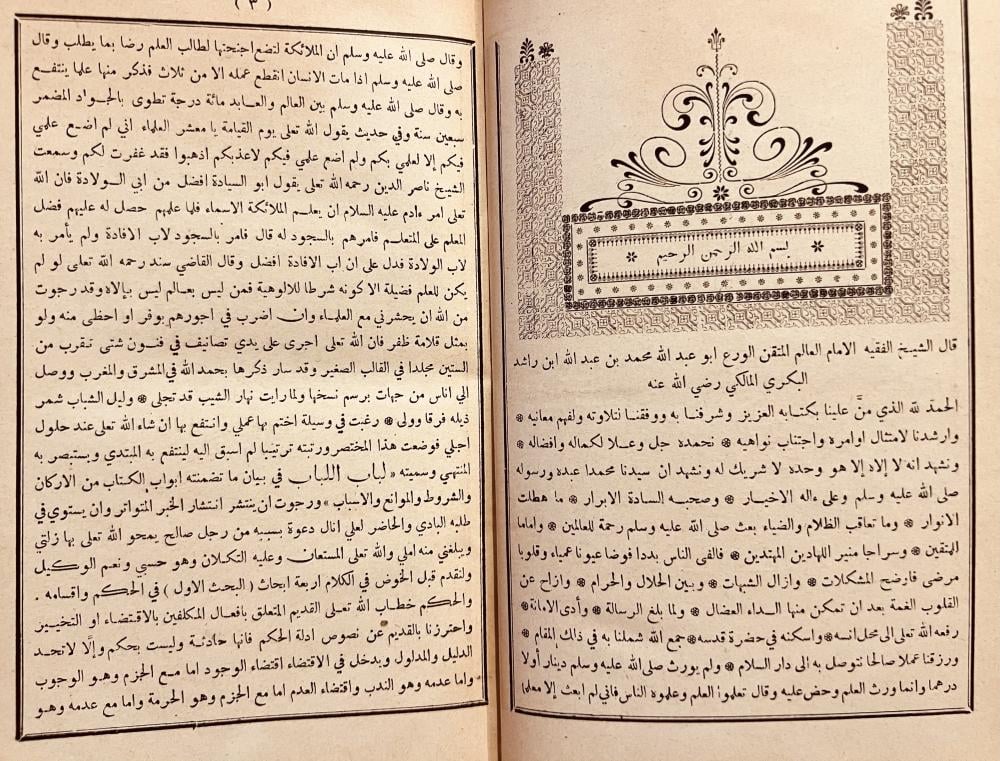 بسم الله الرحمن الرحيم
قال الشيخ الفقيه الامام العالم المتقن الورع ابو عبد الله محمد بن عبد الله ابن راشد
البكري المالكي رضي الله عنه
الحمد لله الذي منَّ علينا بكتابه العزيز وشرفنا به ووفقنا لتلاوته ولفهم معانيه *
وارشدنا لامتثال اوامره واجتناب نواهيه * نحمده جل وعلا لكماله وافضاله *
ونشهد انه لا إلاه إلا هو وحده لا شريك له ونشهد ان سيدنا محمدا عبده ورسوله
صلى الله عليه وسلم وعلى ءاله الاخيار * وصحبه السادة الابرار * ما هطلت
الانوار * وما تعاقب الظلام والضياء بعث صلى الله عليه وسلم رحمة للعالمين * واماما
للمتقين * وسراجا منير اللهادين المهتدين * فالفى الناس بددا فوضا عيونا عمياء وقلوبا
مرضى فارضح المشكلات * وازال الشبهات * وبين الحلال والحرام * وازاح عن
القلوب الغمة بعد ان تمكن منها الداء العضال * ولما بلغ الرسالة * وأدى الامانة *
رفعه الله تعلى الى محل انسه * واسكنه في حضرة قدسه * جمع الله شملنا به في ذلك المقام *
ورزقنا عملا صالحا نتوصل به الى دار السلام * ولم يورث صلى الله عليه وسلم دينار أولا
درهما وانما ورث العلم وحض عليه وقال تعلموا العلم وعلموه الناس فاني لم ابعث إلا معلما
( ٣ )
وقال صلى الله عليه وسلم ان الملائكة لتضع اجنحتها لطالب العلم رضا بما يطلب وقال
صلى الله عليه وسلم اذا مات الانسان انقطع عمله الا من ثلاث فذكر منها علما ينتفع
به وقال صلى الله عليه وسلم بين العالم والعابد مائة درجة تطوى بالجواد المضمر
سبعين سنة وفي حديث يقول الله تعلى يوم القيامة يا معشر العلماء اني لم اضع علمي
فيكم إلا لعلمي بكم ولم اضع علمي فيكم لاعذبكم اذهبوا فقد غفرت لكم وسمعت
الشيخ ناصر الدين رحمه الله تعلى يقول ابو السيادة افضل من ابي الولادة فان الله
تعلى امر ءادم عليه السلام ان يعلم الملائكة الاسماء فلما علمهم حصل له عليهم فضل
المعلم على المتعلم فامرهم بالسجود له قال فامر بالسجود لاب الافادة ولم يأمر به
لاب الولادة فدل على ان اب الافادة افضل وقال القاضي سند رحمه الله تعلى لو لم
يكن للعلم فضيلة الا كونه شرطا للالوهية فمن ليس بعالم ليس بإلاه وقد رجوت
من الله ان يحشرني مع العلماء وان اضرب في اجورهم بوفر او احظى منه ولو
بمثل قلامة ظفر فان الله تعلى اجرى على يدي تصانيف في فنون شتى تقرب من
الستين مجلدا في القالب الصغير وقد سار ذكرها بحمد الله في المشرق والمغرب ووصل
الي اناس من جهات برسم نسخها ولما رايت نهار الشيب قد تجلى * وليل الشباب شمر
ذيله فرقا وولى * رغبت في وسيلة اختم بها عملي وانتفع بها ان شاء الله تعلى عند حلول
اجلي فوضعت هذا المختصر ورتبته ترتيبا لم اسبق اليه لينتفع به المبتدي ويستبصر به
المنتهي وسميته «لباب اللباب في بيان ما تضمنته ابواب الكتاب من الاركان
والشروط والموانع والاسباب» ورجوت ان ينتشر انتشار الخبر المتواتر وان يستوي في
طلبه البادي والحاضر لعلي انال دعوة بسببه من رجل صالح يمحو الله تعلى بها زلتي
ويبلغني منه املي والله تعلى المستعان وعليه التكلان وهو حسبي ونعم الوكيل
ولنقدم قبل الخوض في الكلام اربعة ابحاث ( البحث الاول ) في الحكم واقسامه .
والحكم خطاب الله تعلى القديم المتعلق بافعال المكلفين بالاقتضاء او التخيير
واحترزنا بالقديم عن نصوص ادلة الحكم فانها حادثة وليست بحكم وإلَّا لاتحد
الدليل والمدلول ويدخل في الاقتضاء اقتضاء الوجود اما مع الجزم وهو الوجوب
واما عدمه وهو الندب واقتضاء العدم اما مع الجزم وهو الحرمة واما مع عدمه وهو